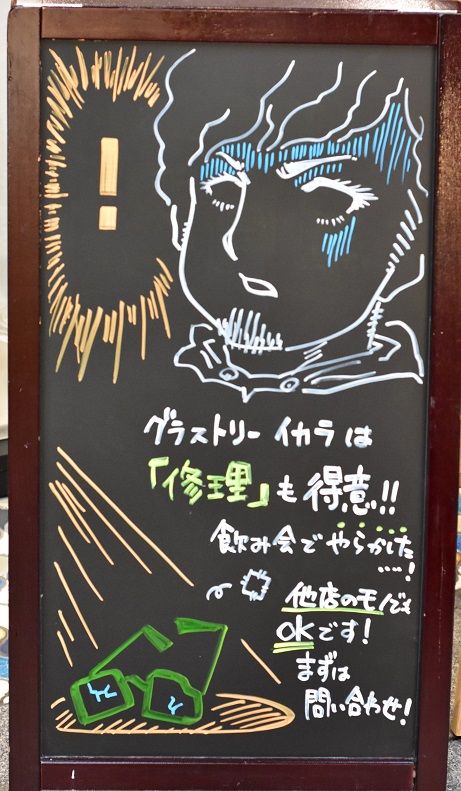 !
グラストリー イカラは
「修理」も得意!!
飲み会でやらかした
……!
他店のモノでも
OKです!
まずは
問い合わせ!